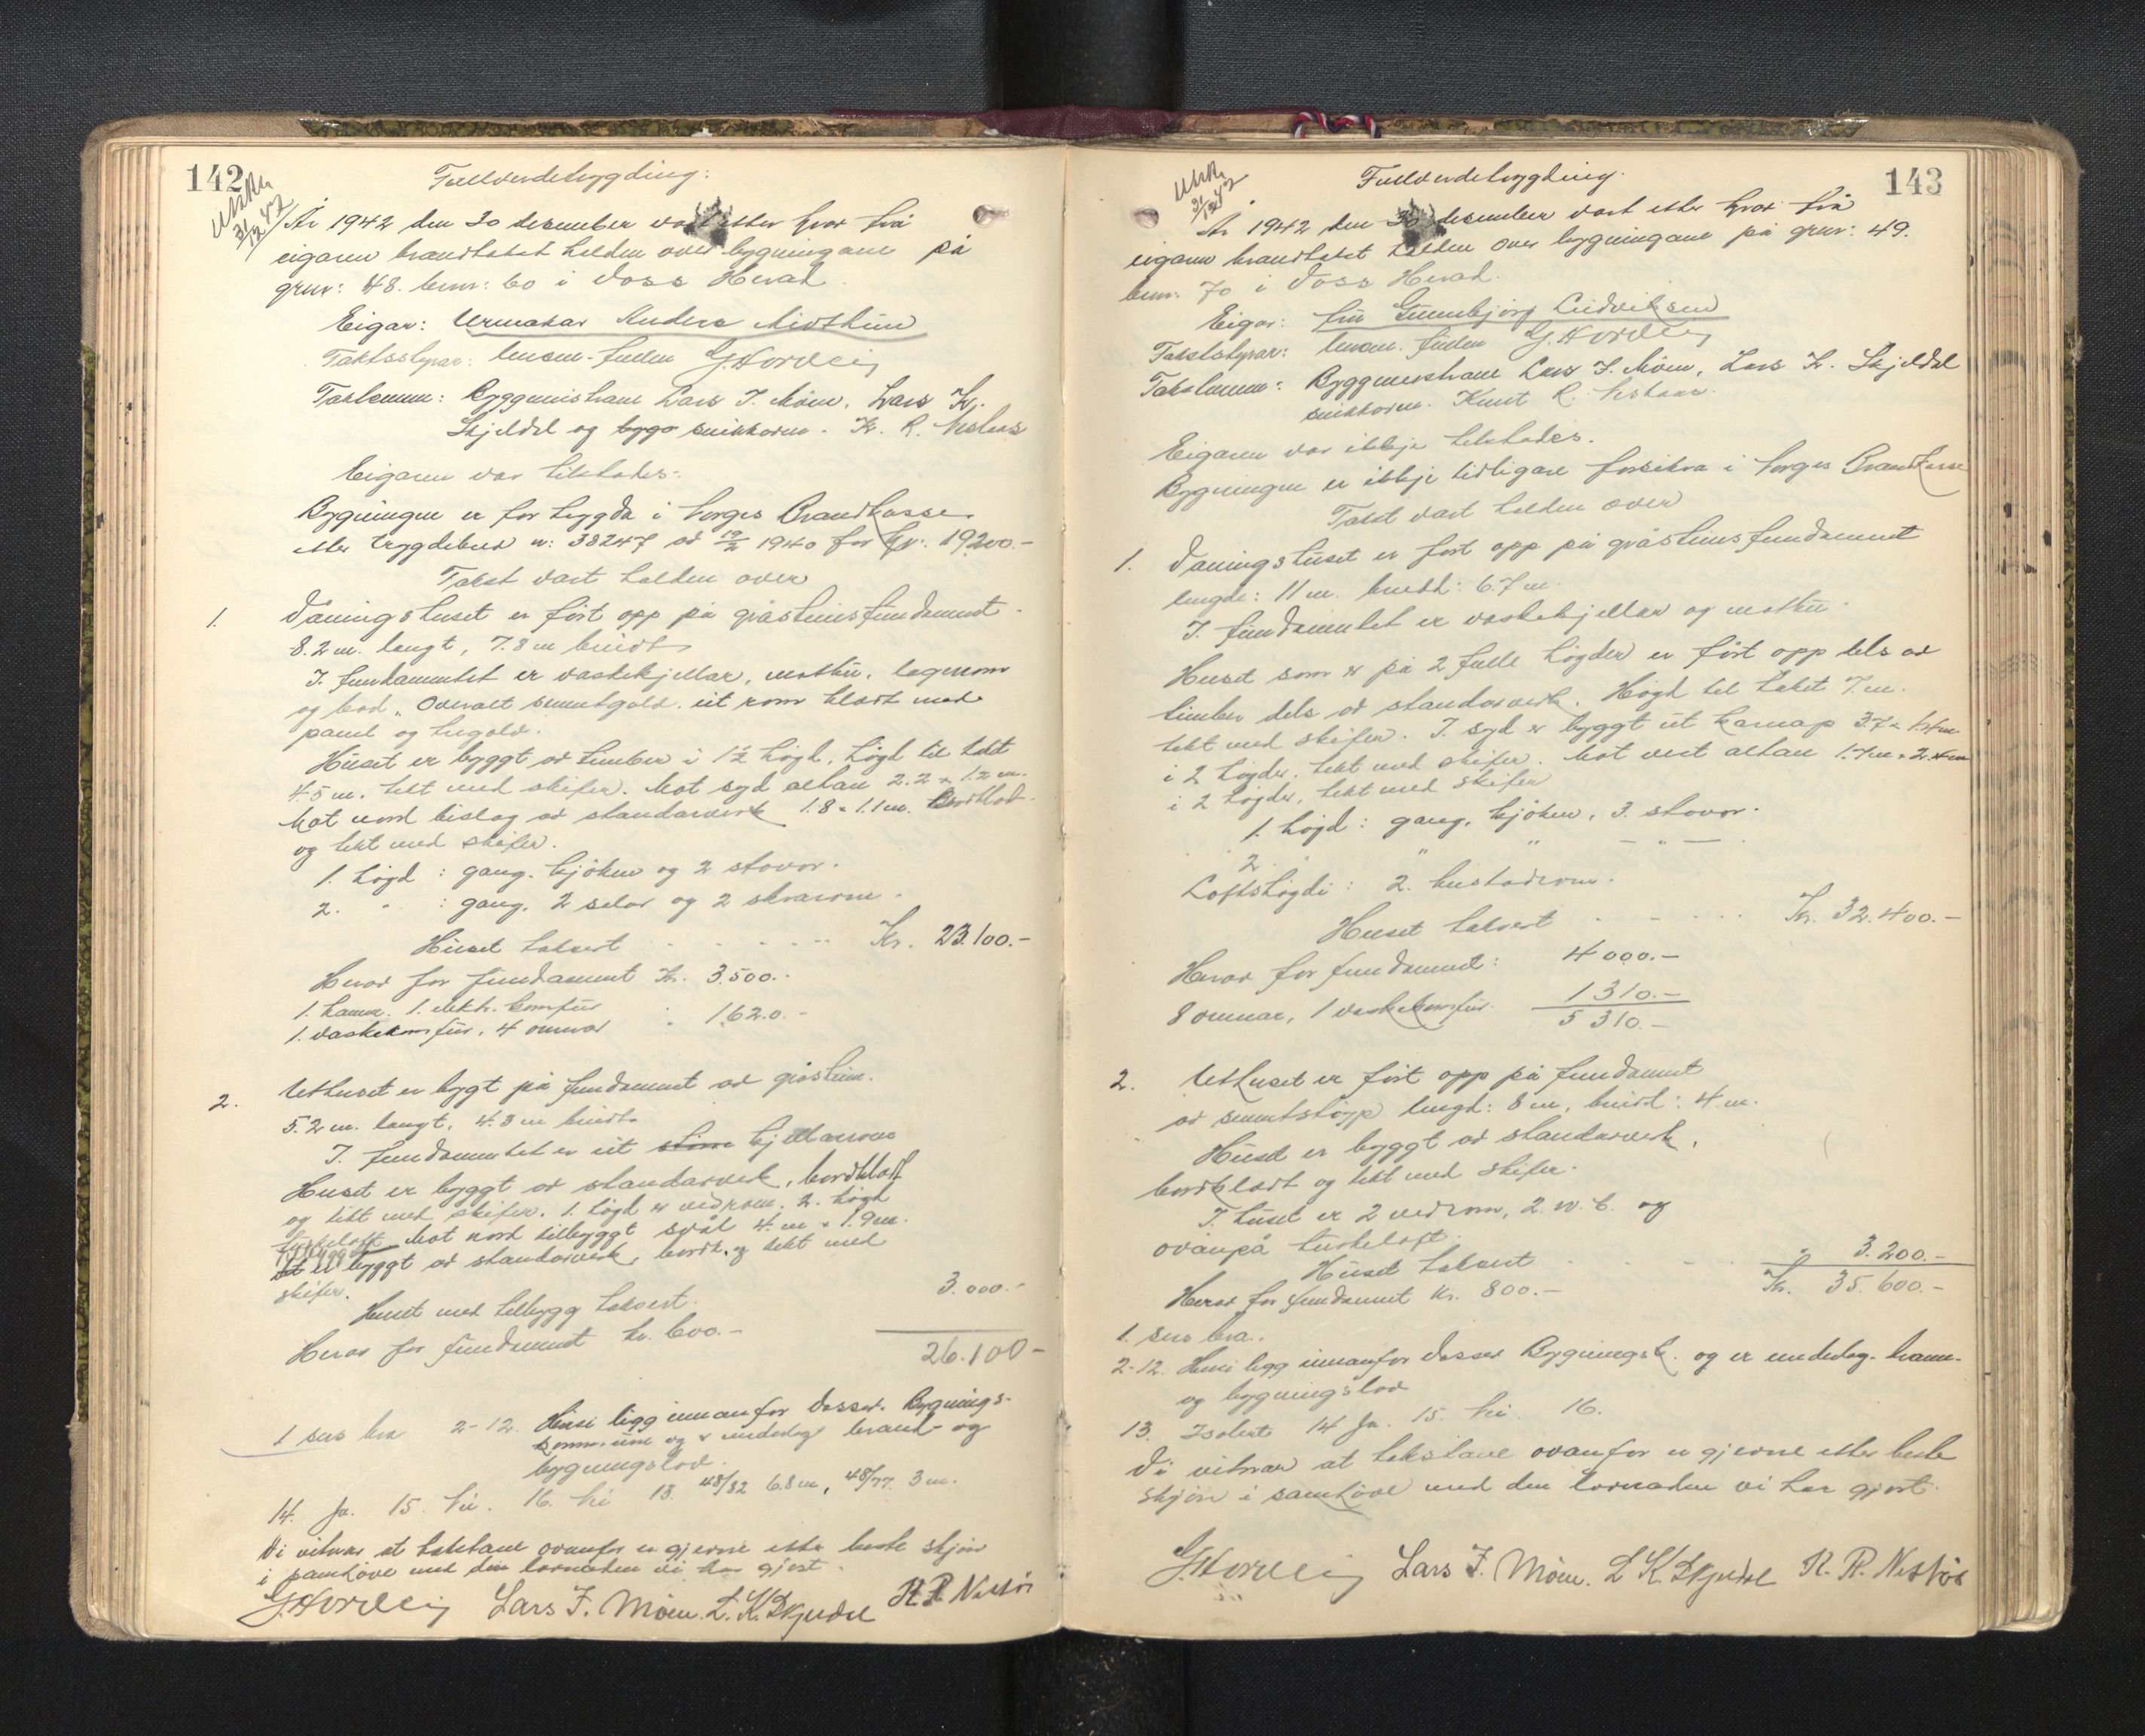 142
Utskr.
31/12 42
Fullverdetrygding:
År 1942 den 30 desember vart etter krav frå
eigaren brandtakst halden over bygningane på
gnr: 48. bnr: 60 i Voss Herad
Eigar: Urmakar Anders Midthun
Takststyrar: lensm. fullm G. Hordvig
Takstmenn: Byggmeistrane Lars J. Møen, Lars K.
Skjeldal og bygg snikkaren K. R. Nestaas
Eigaren var tilstades.
Bygningen er for trygda i Norges Brandkasse
etter trygdebrev nr: 38247 av 19/2 1940 for kr. 19200.-
Takst vart halden over
1. Våningshuset er ført opp på gråsteinsfundament
8.2 m. langt, 7.8 m breidt
I fundamentet er vaskekjellar, matbu, lagerrom
og bod. Overalt sementgolv. eit rom kledt med
panel og tregolv.
Huset er byggt av timber i 1½ høgd, høgd til taket
4.5 m. tekt med skifer. Mot syd altan 2.2 x 1.2 m.
Mot nord bislag av standarverk 1.8 x 1.1 m. Bordkledt
og tekt med skifer.
1. høgd : gang. kjøken og 2 stovor.
2. " : gang, 2 svalar og 2 skrarom.
Huset taksert Kr. 23.100.-
Herav for fundament Kr. 3.500.-
1. kamin. 1. elektr. komfur
1. vaskekomfur, 4 omnar " 1620.-
2. Uthuset er bygt på fundament av gråstein.
5.2 m. langt, 4.8 m breidt
I fundamentet er eit kjellarrom
Huset er byggt av standarverk, bordkledt
og tekt med skifer. 1. høgd er vedrom. 2. høgd
tørkeloft. Mot nord tilbyggt svål 4. m x 1.9 m.
Tilbygget er byggt av standarverk, bordk. og tekt med
skifer.
Huset med tilbygg taksert. 3.000.-
Herav for fundament kr. 600.-
26.100-
1 sers bra 2-12. Husi ligg innanfor Vossev. Bygnings-
kommune og er underlag brand- og
bygningslov.
14. Ja. 15. Nei. 16. Nei 13. 48/82 6.8 m, 48/77 3 m.
Vi vitnar at takstane ovanfor er gjerne etter beste skjøn
i samhøve med den lovnaden vi har gjort.
G. Hordvig Lars J. Møen. L. K. Skjeldal K R Nestås
143
Utskr.
31/12 42
Fullverdetrygding.
År 1942 den 30 desember vart etter krav frå
eigaren brandtakst halden over bygningane på gnr: 49.
bnr: 70 i Voss Herad.
Eigar: fru Gunnbjørg Ludviksen
Takststyrar: lensm. fullm G. Hordvig
Takstmenn: Byggmeistrane Lars J. Møen, Lars K. Skjeldal
snikkaren. Knut R. Nestaas.
Eigaren var ikkje tilstades.
Bygningen er ikkje tidligare forsikra i Norges Brandkasse
Takst vart halden over
1. Våningshuset er ført opp på gråsteinsfundament
lengde: 11 m. breidd: 6.7 m.
I fundamentet er vaskekjellar og matbu.
Huset som er på 2 fulle høgder er ført opp dels av
timber dels av standarverk. Høgd til taket 7 m.
tekt med skifer. I syd er byggt ut karnap 3.7 x 1.4 m.
i 2 høgder, tekt med skifer. Mot vest altan 1.7 m x 2.4 m
i 2 høgder, tekt med skifer
1. høgd : gang, kjøken, 3. stovor.
2. " " " — " —
Loftshøgdi : 2. kvistadrom.
Huset taksert Kr. 32.400.-
Herav for fundament: 4000.-
8 omnar, 1 vaskekomfur. 1310.-
5310.-
2. Uthuset er ført opp på fundament
av sementstøyp lengd: 8 m, breidd: 4. m.
Huset er byggt av standarverk,
bordkledt og tekt med skifer.
I huset er 2 vedrom, 2. W. C. og
ovanpå tørkeloft.
Huset taksert " 3.200.-
Herav for fundament Kr. 800.- Kr. 35.600.-
1. sers bra.
2-12. Husi ligg innanfor Vossev Bygningsk. og er underlag. brann-
og bygningslov
13. Isolert 14 Ja. 15. Nei. 16.
Vi vitnar at takstane ovanfor er gjerne etter beste
skjøn i samhøve med den lovnaden vi har gjort.
G. Hordvig Lars J. Møen. L K. Skjeldal K. R. Nestås